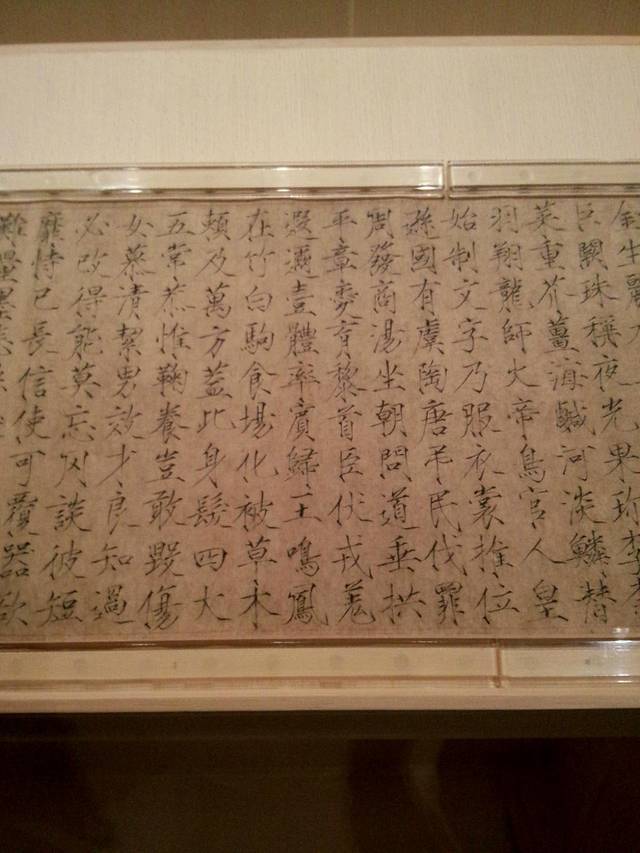 金生麗
巨闕珠稱夜光果珍李柰
菜重芥薑海鹹河淡鱗潛
羽翔龍師火帝鳥官人皇
始制文字乃服衣裳推位
遜國有虞陶唐弔民伐罪
周發商湯坐朝問道垂拱
平章愛育黎首臣伏戎羌
遐邇壹體率賓歸王鳴鳳
在竹白駒食場化被草木
賴及萬方蓋此身髮四大
五常恭惟鞠養豈敢毀傷
女慕清絜男效才良知過
必改得能莫忘罔談彼短
靡恃己長信使可覆器欲
難量墨悲絲